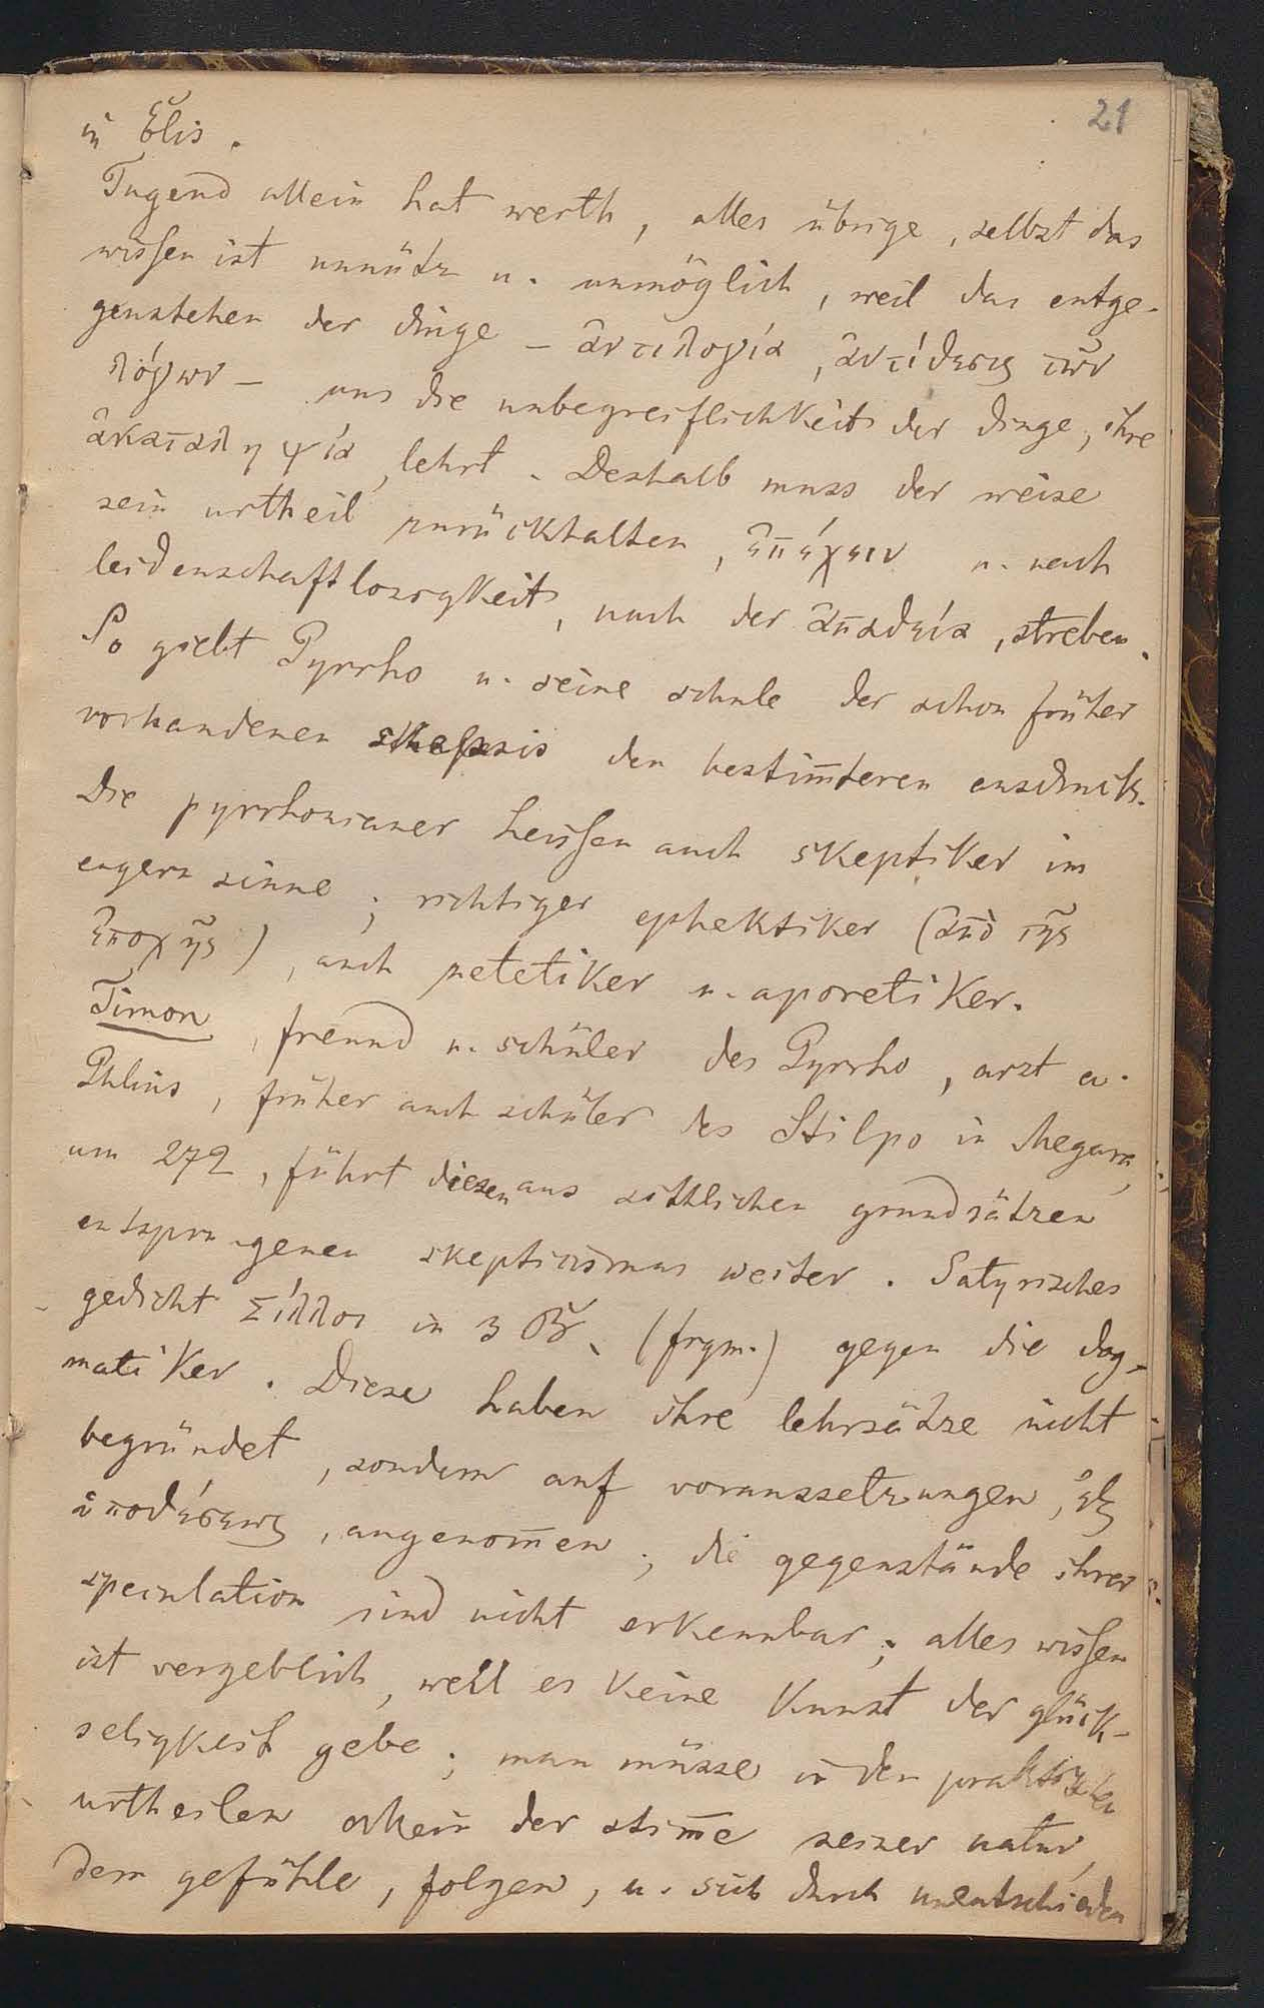 21
in Ĕlis.
Tugend allein hat werth, alles übrige, selbst das
wissen ist unnütz u. unmöglich, weil das entge-
genstehen der dinge – ἀντιλογία, ἀντίθεσις τῶν
λόγων – uns die unbegreiflichkeit der dinge, ihre
ἀκαταληψία, lehrt. Deshalb muss der weise
sein urtheil zurückhalten, ἐπέχειν u. nach
leidenschaftlosigkeit, nach der ἀπαθεία, streben.
So giebt Pyrrho u. seine schule der schon früher
vorhandenen skepsis den bestim̅teren ausdruck.
Die pyrrhonianer heissen auch skeptiker im
engern sinne; richtiger ephektiker (ἀπὸ τῆς
ἐποχῆς), auch zetetiker u. aporetiker.
Timon, freund u. schüler des Pyrrho, arzt a.
Phlius, früher auch schüler des Stilpo in Megara,
um 272, führt diesen aus sittlichen grundsätzen
entsprungenen skepticismus weiter. Satyrisches
gedicht Σίλλοι in 3 B. (frgm.) gegen die dog-
matiker. Diese haben ihre lehrsätze nicht
begründet, sondern auf voraussetzungen, ἐξ
ὑποθέσεως, angenom̅en; die gegenstände ihrer
speculation sind nicht erkennbar; alles wissen
ist vergeblich, weil es keine kunst der glück-
seligkeit gebe; man müsse in den praktischen
urtheilen allein der stim̅e seiner natur,
dem gefühle, folgen, u. sich durch unentschieden